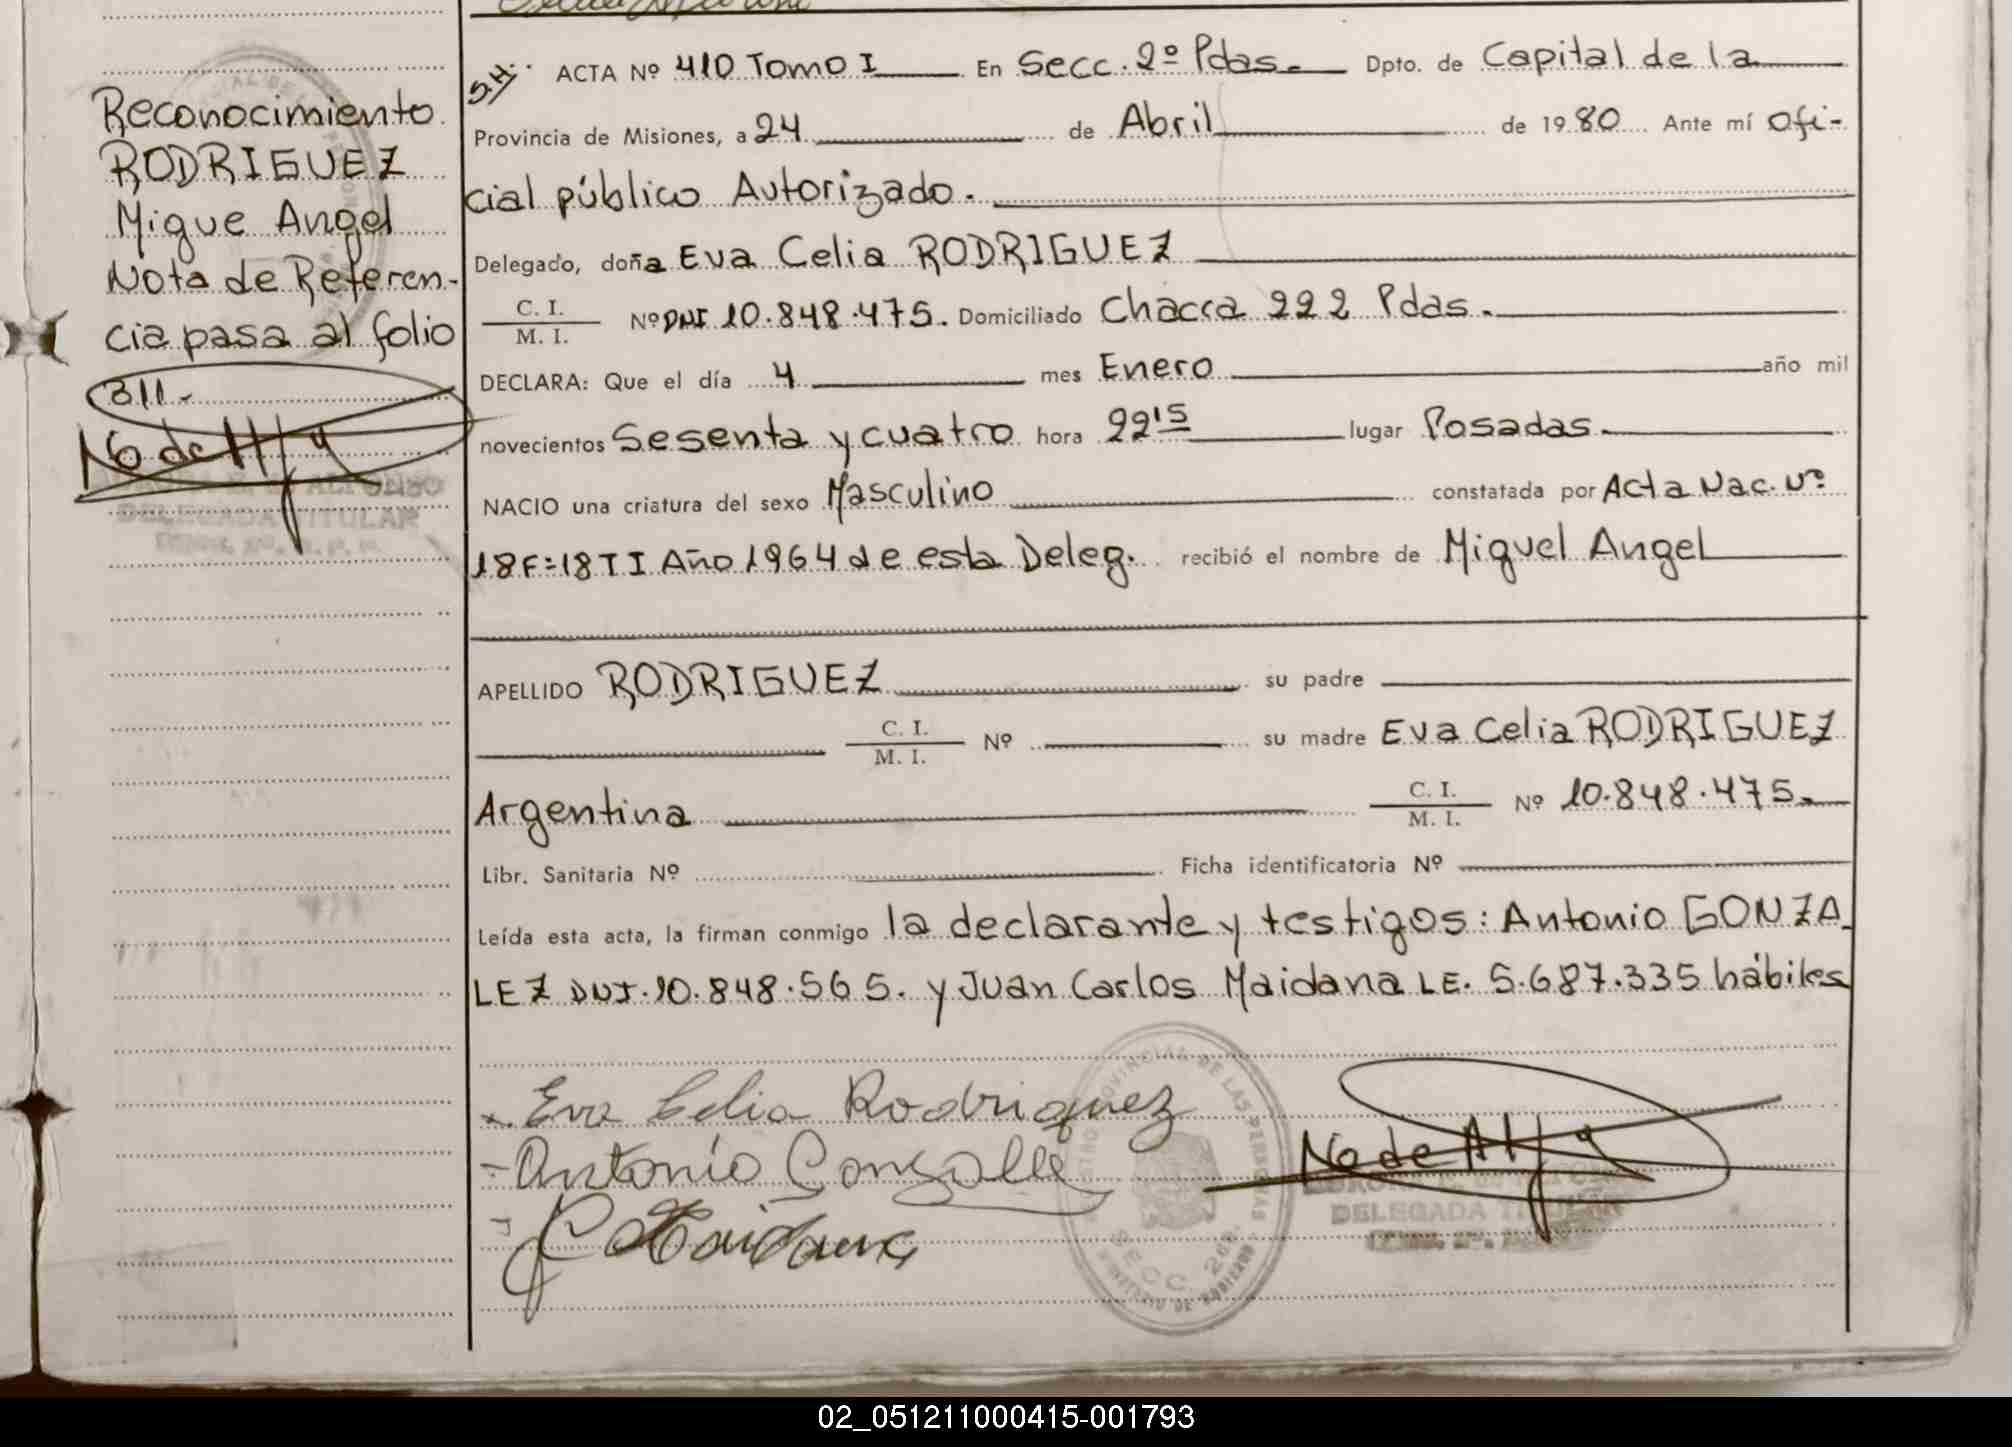 Reconocimiento
RODRIGUEZ
Migue Angel
Nota de Referen-
cia pasa al folio
311.-
DELEGADA TITULAR
S.H. ACTA Nº 410 Tomo I En Secc. 2º Pdas. Dpto. de Capital de la
Provincia de Misiones, a 24 de Abril de 1980 Ante mí Ofi-
cial público Autorizado.
Delegado, doña Eva Celia RODRIGUEZ
C. I.
M. I. Nº DNI 10.848.475. Domiciliado Chacra 222 Pdas.
DECLARA: Que el día 4 mes Enero año mil
novecientos Sesenta y cuatro hora 22 15 lugar Posadas.
NACIO una criatura del sexo Masculino constatada por Acta Nac. Nº
18 F=18 T I Año 1964 de esta Deleg. recibió el nombre de Miguel Angel
APELLIDO RODRIGUEZ su padre
C. I.
M. I. Nº su madre Eva Celia RODRIGUEZ
Argentina C. I.
M. I. Nº 10.848.475.
Libr. Sanitaria Nº Ficha identificatoria Nº
Leída esta acta, la firman conmigo la declarante y testigos: Antonio GONZA
LEZ DNI. 10.848.565. y Juan Carlos Maidana LE. 5.687.335 hábiles
Eva Celia Rodriguez
Antonio Gonzalle
DELEGADA TITULAR
02_051211000415-001793